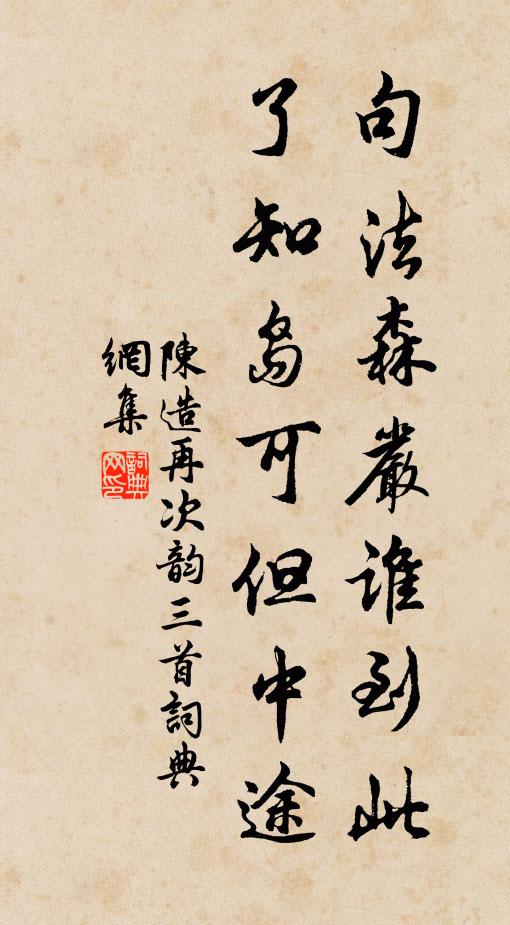 句法森嚴誰到此
了知島可但中途
陳造再次韵三首詞典
網集
詞典網印